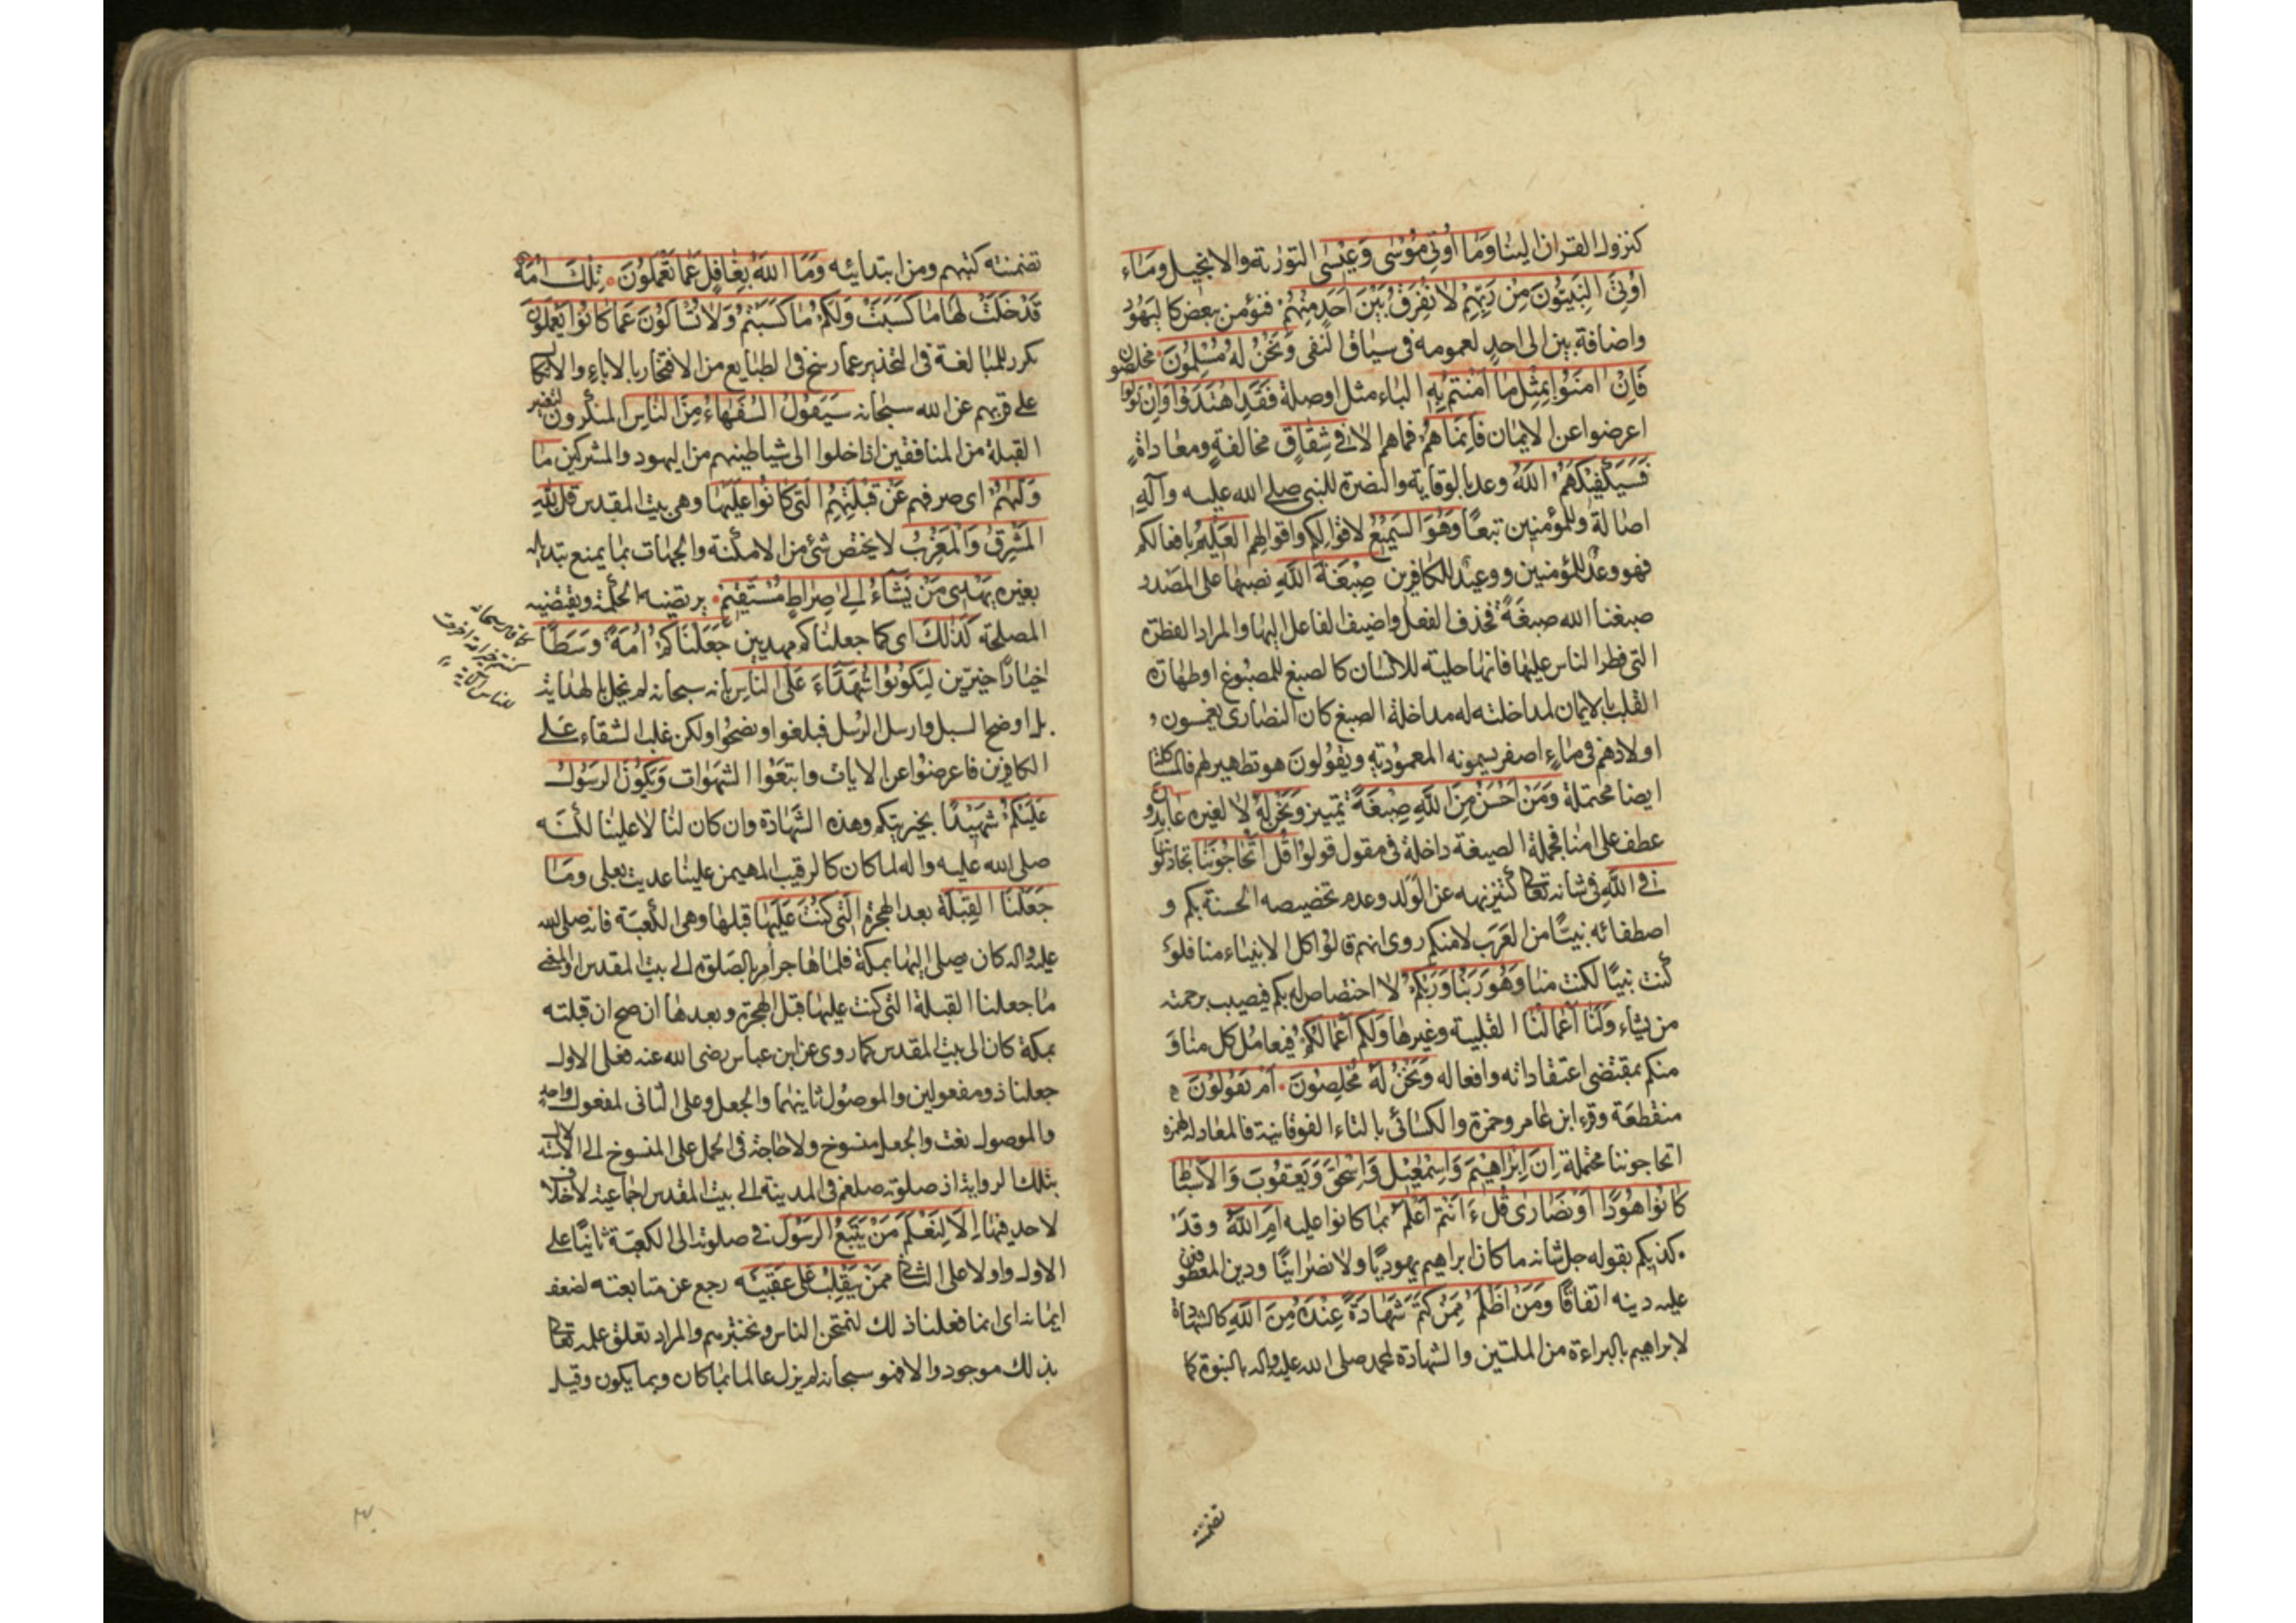 كنزول القران الينا وَمَا أُوتِيَ مُوسَى وَعِيسَى التورىة والانجيل وَمَاء
أُوتِيَ النَّبِيُّونَ مِنْ رَبِّهِمْ لَا نُفَرِّقُ بَيْنَ أَحَدٍ مِنْهُمْ فنؤمن ببعض كاليهود
واضافة بين الى احدٍ لعمومه فى سياق النفى وَنَحْنُ لَهُ مُسْلِمُونَ مخلصون
فَإِنْ آمَنُوا بِمِثْلِ مَا آمَنْتُمْ بِهِ الباء مثل اوصلة فَقَدِ اهْتَدَوْا وَإِنْ تَوَلَّوْا
اعرضوا عن الايمان فَإِنَّمَا هُمْ فماهم الا فِي شِقَاقٍ مخالفةٍ ومعاداةٍ
فَسَيَكْفِيكَهُمُ اللَّهُ وعد بالوقاية والنصرة للنبى صلى الله عليه وآلهِ
اصالة وللمؤمنين تبعًا وَهُوَ السَّمِيعُ لاقوالكم واقوالهم الْعَلِيمُ بافعالكم
فهو وعدٌ للمؤمنين ووعيدٌ للكافرين صِبْغَةَ اللَّهِ نصبها على المصدر
صبغنا الله صبغَةً فحذف الفعل واضيف الفاعل اليها والمراد الفطرة
التى فطر الناس عليها فانها حلية للانسان كالصبغ للمصبوغ اوطهارة
القلب بالايمان لمداخلته له مداخلة الصبغ كان النصارى يغمسون
اولادهم فى ماءٍ اصفر يسمونه المعمُوديّة ويقولونَ هو تطهير لهم فالمشاكلة
ايضا محتملة وَمَنْ أَحْسَنُ مِنَ اللَّهِ صِبْغَةً تمييز وَنَحْنُ لَهُ لا لغيره عَابِدُونَ
عطف على امنا فجملة الصبغة داخلة فى مقول قولوا قُلْ أَتُحَاجُّونَنَا تجادلوننا
فِي اللَّهِ فى شانه تعالى كتنزيهه عن الولد وعدم تخصيصه الحسنة بكم و
اصطفائه نبيًّا من العَرَب لامنكم روى انهم قالوا كل الانبياء منا فلو
كُنت نبيًّا لكنت منا وَهُوَ رَبُّنَا وَرَبُّكُمْ لا اختصاص له بكم فيصيب برحمته
من يشاء وَلَنَا أَعْمَالُنَا القلبية وغيرها وَلَكُمْ أَعْمَالُكُمْ فيعامل كل منا و
منكم بمقتضى اعتقاداته وافعاله وَنَحْنُ لَهُ مُخْلِصُونَ أَمْ تَقُولُونَ
منقطعَة وقرء ابن عامر وحمزة والكسائى بالتاء الفوقانية فالمعادلة لهمزة
اتحاجوننا محتملة إِنَّ إِبْرَاهِيمَ وَإِسْمَعِيلَ وَإِسْحَقَ وَيَعْقُوبَ وَالْأَسْبَاطَ
كَانُوا هُودًا أَوْ نَصَارَى قُلْ ءَأَنْتُمْ أَعْلَمُ بما كانوا عليه أَمِ اللَّهُ وقَدْ
كذبكم بقوله جل شانه ما كان ابراهيم يهوديًّا ولا نصرانيًّا ودين المعطوفين
عليه دينه اتفاقًا وَمَنْ أَظْلَمُ مِمَّنْ كَتَمَ شَهَادَةً عِنْدَهُ مِنَ اللَّهِ كالشهادة
لابراهيم بالبراءة من الملتين والشهادة لمحمد صلى الله عليه واله بالنبوة كما
تضمنته
تضمنته كتبهم ومن ابتدائيه وَمَا اللَّهُ بِغَافِلٍ عَمَّا تَعْمَلُونَ تِلْكَ أُمَّةٌ
قَدْ خَلَتْ لَهَا مَا كَسَبَتْ وَلَكُمْ مَا كَسَبْتُمْ وَلَا تُسْأَلُونَ عَمَّا كَانُوا يَعْمَلُونَ
كرر للمبالغة فى التحذير عما رسخ فى الطبايع من الافتخار بالاباءِ والاتكال
على قربهم عن الله سبحانه سَيَقُولُ السُّفَهَاءُ مِنَ النَّاسِ المنكرون لتغيير
القبلة من المنافقين اذا خلوا الى شياطينهم من اليهود والمشركين مَا
وَلَّيهُمْ اى صرفهم عَنْ قِبْلَتِهِمُ الَّتِي كَانُوا عَلَيْهَا وهى بيت المقدس قُلْ لِلَّهِ
الْمَشْرِقُ وَالْمَغْرِبُ لا يختص شئ من الامكنة والجهات بما يمنع بتدله
بغيره يَهْدِي مَنْ يَشَاءُ إِلَى صِرَاطٍ مُسْتَقِيمٍ يرتضيه الحكمة ويقتضيه
المصلحة كَذَلِكَ اى كما جعلناكم مهديين جَعَلْنَاكُمْ أُمَّةً وَسَطًا
اخيارًا خيّرين لِتَكُونُوا شُهَدَاءَ عَلَى النَّاسِ بانه سبحانه لم يبخل بالهداية
بل اوضح السبل وارسل الرسل فبلغوا ونصحُوا ولكن غلب الشقاء عَلى
الكافرين فاعرضوا عن الايات واتبعُوا الشهوات وَيَكُونَ الرَّسُولُ
عَلَيْكُمْ شَهِيدًا بخيريتكم وهذه الشهادة وان كان لنا لا علينا لكنه
صلى الله عليه واله لما كان كالرقيب المهيمن علينا عديت بعلى وَمَا
جَعَلْنَا الْقِبْلَةَ بعد الهجرة الَّتِي كُنْتَ عَلَيْهَا قبلها وهى الكعبَة فانه صلى الله
عليه واله كان يصلى اليها بمكة فلما هاجر امر بالصلوة الى بيت المقدس والمعنى
ما جعلنا القبلة التى كنت عليها قبل الهجرة وبعدها ان صح ان قبلته
بمكة كان الى بيت المقدس كما روى عن ابن عباس رضى الله عنه فعلى الاول
جعلنا ذو مفعولين والموصُول ثانيهما والجعل وعلى الثانى لمفعول واحد
والموصول نعت والجعل منسوخ ولا حاجة فى الحمل على المنسوخ الى
بتلك الرواية اذ صلوته صلعم فى المدينة الى بيت المقدس اجماعية لا خلاف
لاحد فيها إِلَّا لِنَعْلَمَ مَنْ يَتَّبِعُ الرَّسُولَ فى صلوته الى الكعبَة ثانيًا على
الاول واولا على الثانى مِمَّنْ يَنْقَلِبُ عَلَى عَقِبَيْهِ رجع عن متابعته لضعف
ايمانه اى انما فعلنا ذلك لنمتحن الناس ونختبرهم والمراد تعلق علمه تعالى
بذلك موجود والا فهو سبحانه لم يزل عالما بما كان وبما يكون وقيل
كما قال سبحانه
كنتم خير امة اخرجت
للناس الآية
٣٠